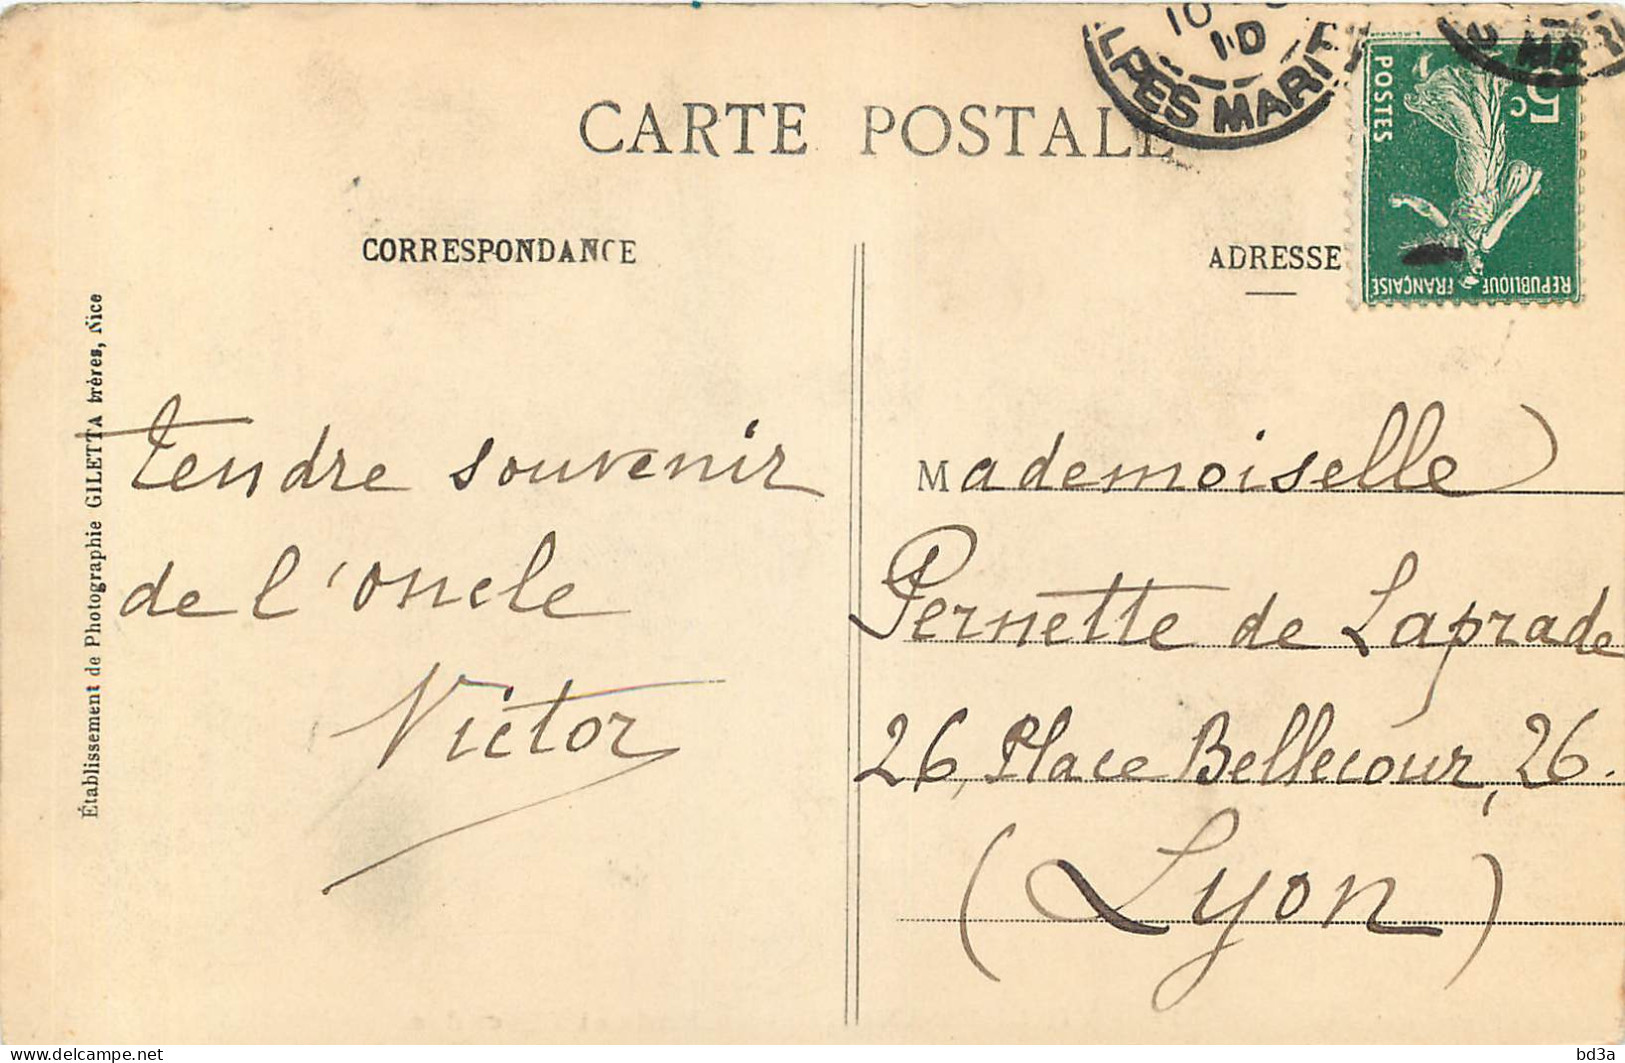 CARTE POSTALE
10
10
ALPES MARIT
5c
POSTES
REPUBLIQUE FRANÇAISE
CORRESPONDANCE
ADRESSE
Établissement de Photographie GILETTA frères, Nice
Tendre souvenir
de l'oncle
Victor
Mademoiselle
Pernette de Laprade
26, Place Bellecour, 26.
(Lyon)
bd3a
delcampe.net